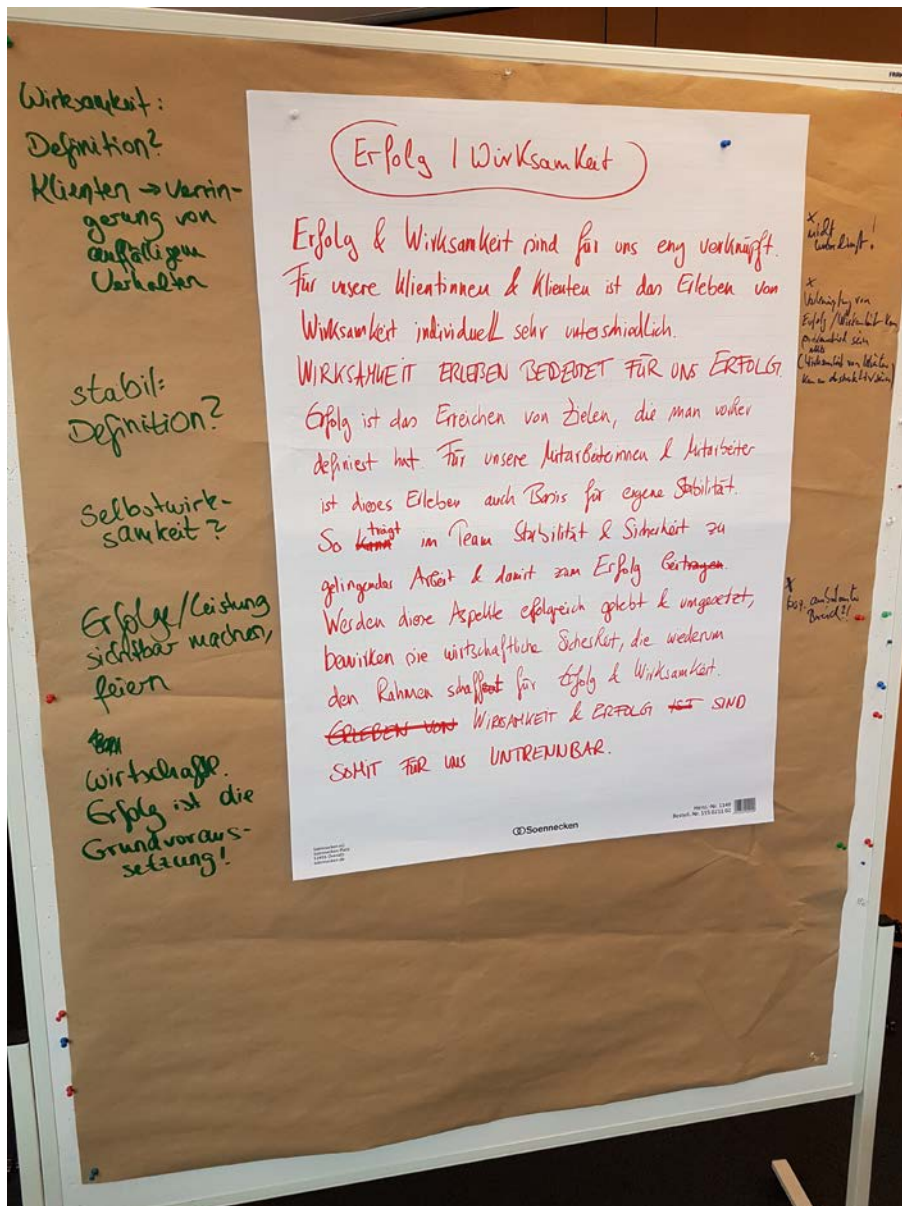 Wirksamkeit:
Definition?
Klienten → Verrin-
gerung von
auffälligem
Verhalten
stabil:
Definition?
Selbstwirk-
samkeit?
Erfolge/Leistung
sichtbar machen,
feiern
wirtschaftl.
Erfolg ist die
Grundvoraus-
setzung!
Erfolg | Wirksamkeit
Erfolg & Wirksamkeit sind für uns eng verknüpft.
Für unsere Klientinnen & Klienten ist das Erleben von
Wirksamkeit individuell sehr unterschiedlich.
WIRKSAMKEIT ERLEBEN BEDEUTET FÜR UNS ERFOLG.
Erfolg ist das Erreichen von Zielen, die man vorher
definiert hat. Für unsere Mitarbeiterinnen & Mitarbeiter
ist dieses Erleben auch Basis für eigene Stabilität.
So kann trägt im Team Stabilität & Sicherheit zu
gelingender Arbeit & damit zum Erfolg beitragen.
Werden diese Aspekte erfolgreich gelebt & umgesetzt,
bewirken sie wirtschaftliche Sicherheit, die wiederum
den Rahmen schafft für Erfolg & Wirksamkeit.
ERLEBEN VON WIRKSAMKEIT & ERFOLG IST SIND
SOMIT FÜR UNS UNTRENNBAR.
Soennecken
x
nicht
x
Verknüpfung von
Erfolg/Wirksamkeit kann
problematisch sein
x
Bsp. ambulanter
Bereich?!